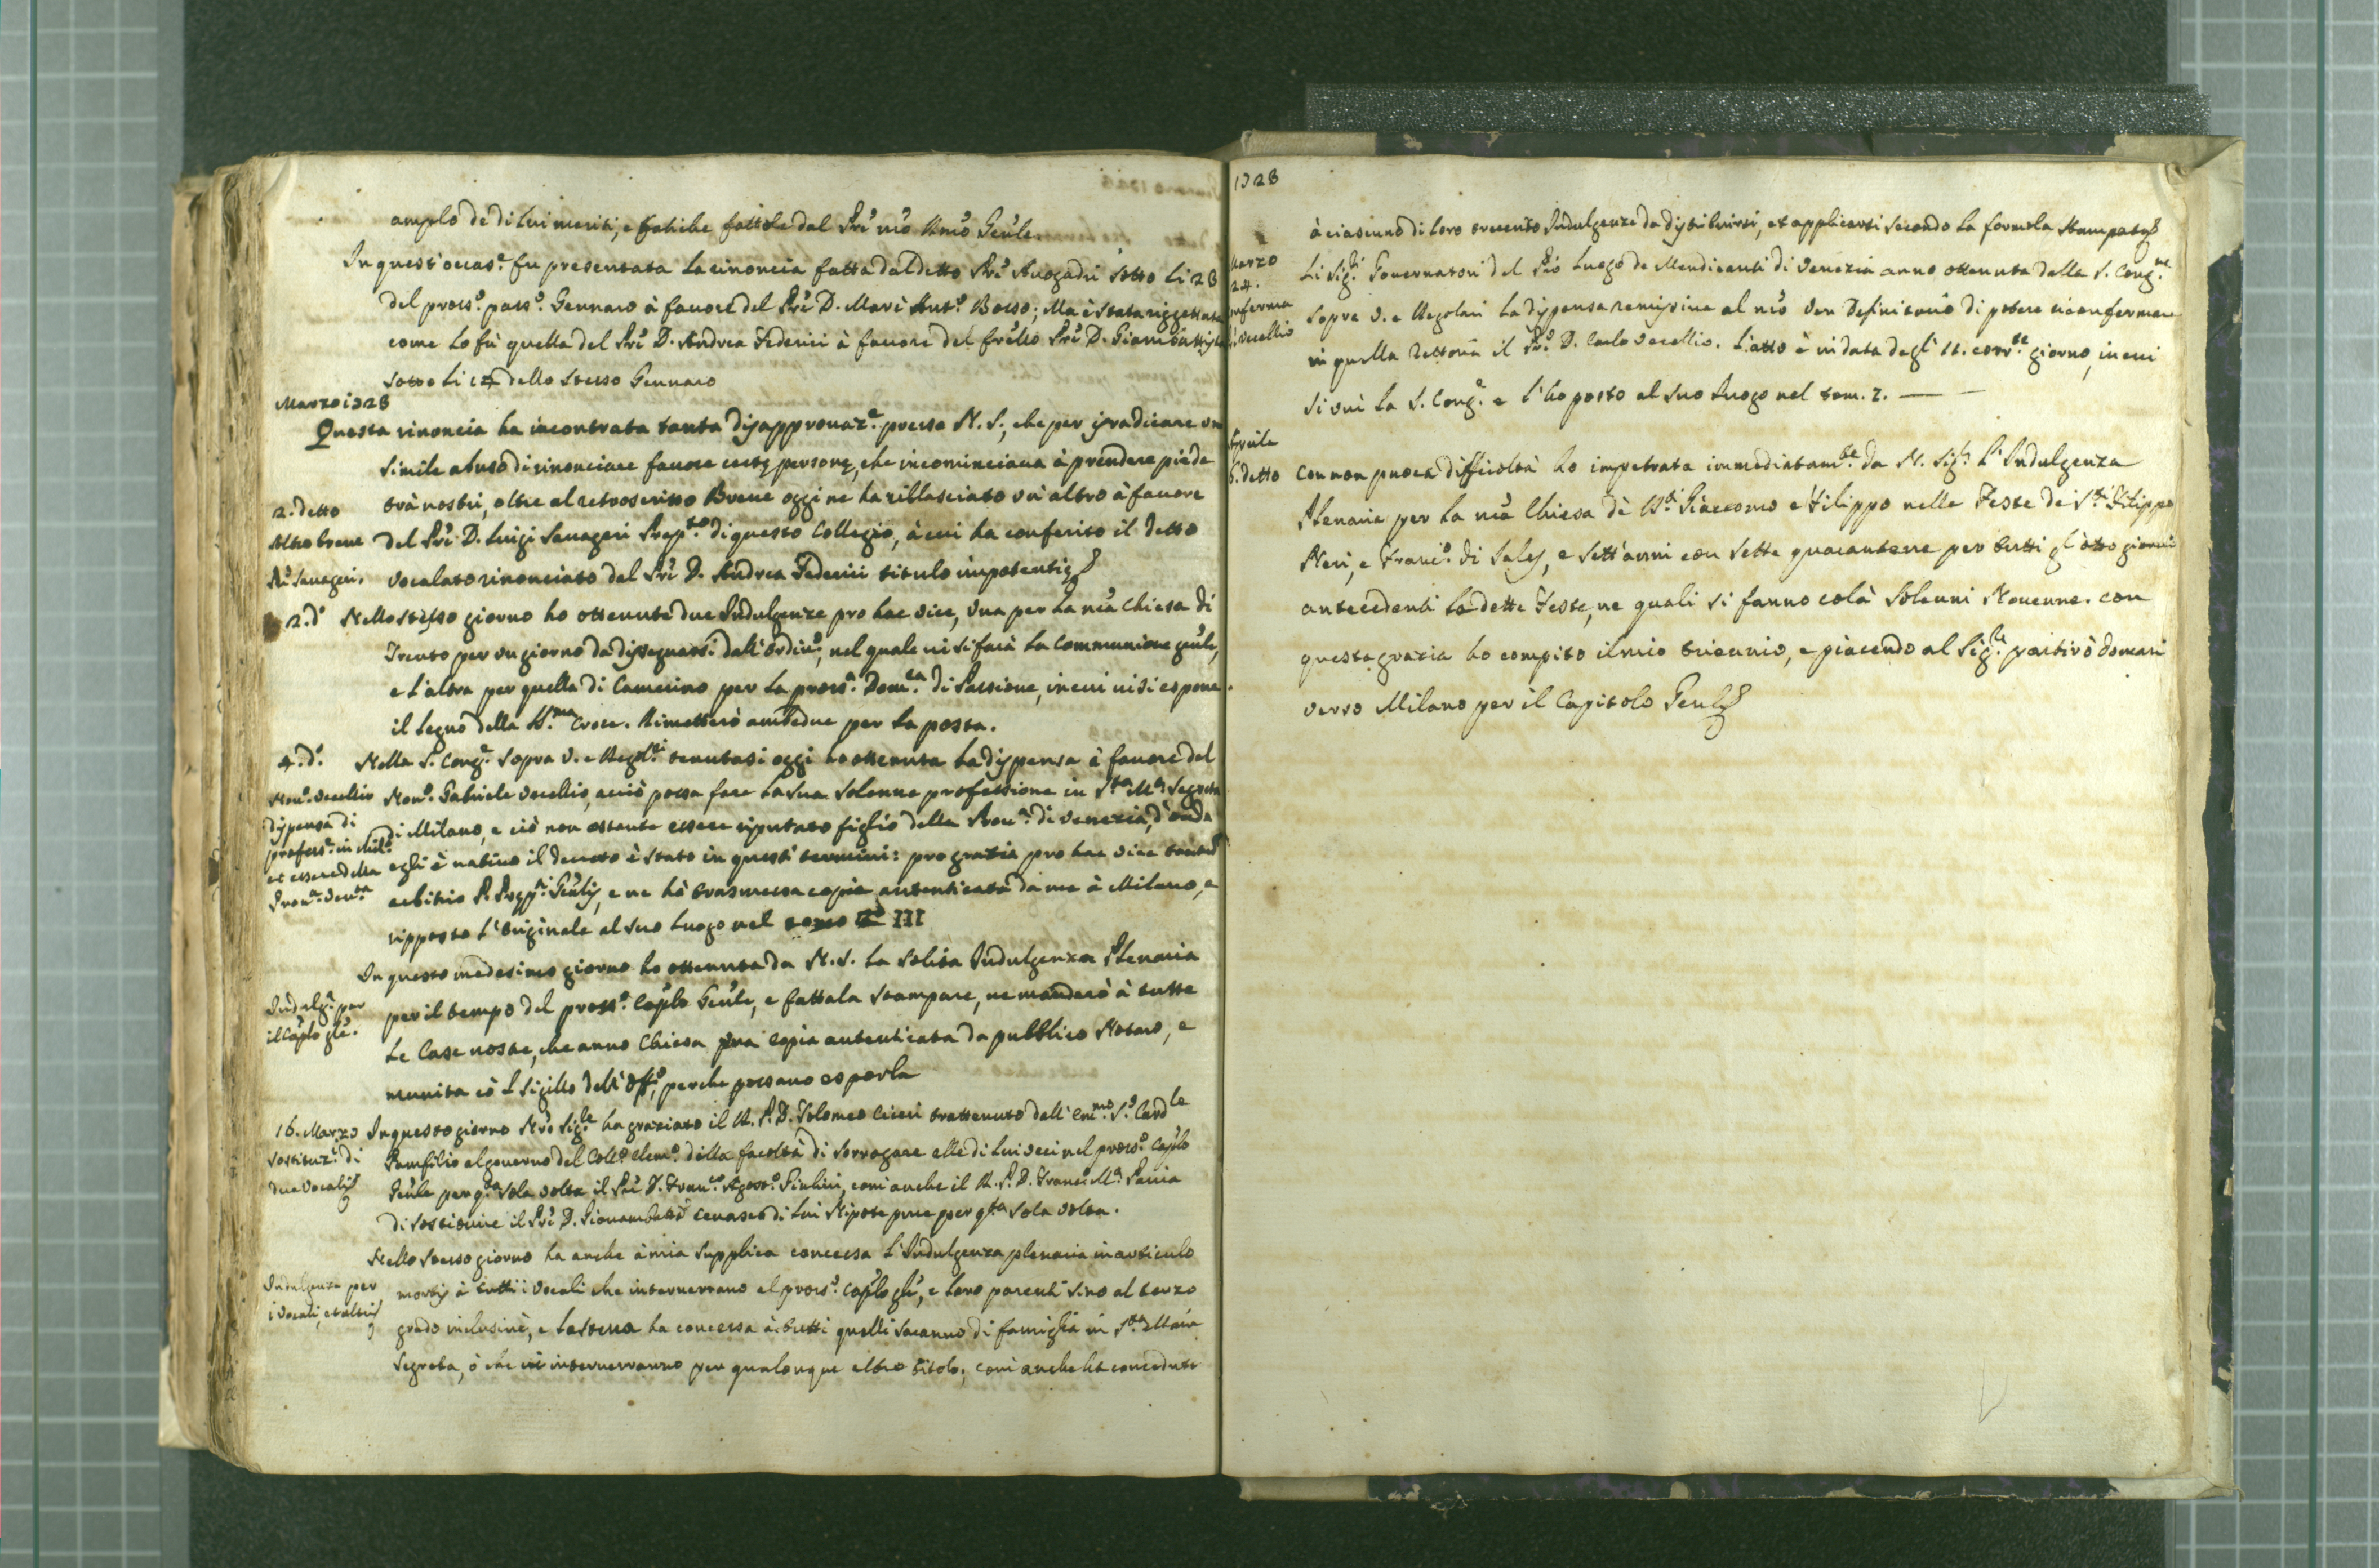 amplo de di lui meriti, e fatiche fattole dal Prē nr̄o Rmō Geñle.
In quest'occas.e fu presentata la rinoncia fatta dal detto Prē Avogadri sotto li 28
del pross.o pass.o Gennaro à favore del Prē D. Marc' Ant.o Bosso; Ma è stata riggettata
come lo fù quella del Prē D. Andrea Federici à favore del frēllo Prē D. Giambattista
sotto li 14 dello stesso Gennaro
Marzo 1728
Questa rinoncia ha incontrata tanta disapprovaz.e presso N. S., che per isradicare un
simile abuso di rinonciare favore certę personę, che incominciava à prendere piede
2. detto
trà nostri, oltre al retroscritto Breve oggi ne ha rillasciato un'altro à favore
Altro breve
del Prē D. Luigi Savageri Prep.to di questo Collegio, à cui ha conferito il detto
Savageri.
vocalato rinonciato dal Prē D. Andrea Federici titulo impotentię
2. d.o
Nello stesso giorno ho ottenute due Indulgenze pro hac vice, una per la nr̄a Chiesa di
Trento per un giorno da dissegnarsi dall'Ordin.o, nel quale vi si farà la Communione geñle,
e l'altra per quella di Camerino per la pross.a Dom.ca di Passione, in cui vi si espone
il legno della SS.ma Croce. Rimetterò ambedue per la posta.
4. d.o
Nella S. Cong.e sopra V. e Reg.ri tenutasi oggi ho ottenuta la dispensa à favore del
Nov.o Vecellio
Nov.o Gabriele Vecellio, acciò possa fare la sua solenne professione in S.ta M.a Segreta
dispensa di
di Milano, e ciò non ostante essere riputato figlio della Prov.a di Venezia, d'onde
profess.e in Mil.o
egli è nativo il decreto è stato in questi termini: pro gratia pro hac vice tantum
et essere della
Prov.a Ven.ta
arbitrio P. Prepp.ti Geñlis, e ne hò trasmessa copia autenticata da me à Milano, e
ripposto l'originale al suo luogo nel tomo III
In questo medesimo giorno ho ottenuta da N. S. la solita Indulgenza Plenaria
Indulg.a per
il Caplo gle.
per il tempo del pross.o Caplo Geñle, e fattala stampare, ne manderò à tutte
le Case nostre, che anno Chiesa una copia autenticata da pubblico Notaro, e
munita cō l sigillo dell'Off.o, perche possano esporla
16. Marzo
In questo giorno Nr̄o Sig.re ha graziato il M. P. D. Tolomeo Ciceri trattenuto dall'Em.mo S.r Card.le
sostituz.e di
due vocali
Pamfilio al governo del Coll.o Clem.o della facoltà di sorrogare alle di lui veci nel pross.o Caplo
Geñle per q.ta sola volta il Prē D. Fran.co Agost.o Giulini, com'anche il M. P. D. Franc.o M.a Pavia
di sostituire il Prē D. Giovambatta Cevasco di lui Nipote pure per q.ta sola volta.
Nello stesso giorno ha anche à mia supplica concessa l'Indulgenza plenaria in articulo
Indulgenza per
i vocali, et altri
mortis à tutti i vocali che interverrano al pross.o Caplo gle, e loro parenti sino al terzo
grado inclusivè, e la stessa ha concessa à tutti quelli saranno di famiglia in S.ta Maria
Segreta, ò che vi interverranno per qualonque altro titolo; com'anche ha concedute
1728
à ciascuno di loro trecento Indulgenze da distribuirsi, et applicarsi secondo la formola stampata
Marzo
24.
Li Sig.ri Governatori del Pio Luogo de Mendicanti di Venezia anno ottenuta dalla S. Cong.ne
conferma
Vecellio
sopra V. e Regolari la dispensa remissive al nr̄o Ven Definitorio di potere riconfermare
in quella Rettoria il Pr.e D. Carlo Vecellio. L'atto è in data degl'11. corr.te giorno, in cui
si unì la S. Cong.e e l'ho posto al suo luogo nel tom. 2.
Aprile
6. detto
Con non puoca difficoltà ho impetrata immediatam.te da N. Sig.re l'Indulgenza
Plenaria per la nr̄a Chiesa dè SS.ti Giaccomo e Filippo nelle Feste de S.ti Filippo
Neri, e Franc.o di Sales, e sett'anni con sette quarantene per tutti gl'otto giorni
antecedenti le dette Feste, ne quali si fanno colà solenni Novenne. Con
questa grazia ho compito il mio triennio, e piacendo al Sig.re partirò domani
verso Milano per il Capitolo Geñle